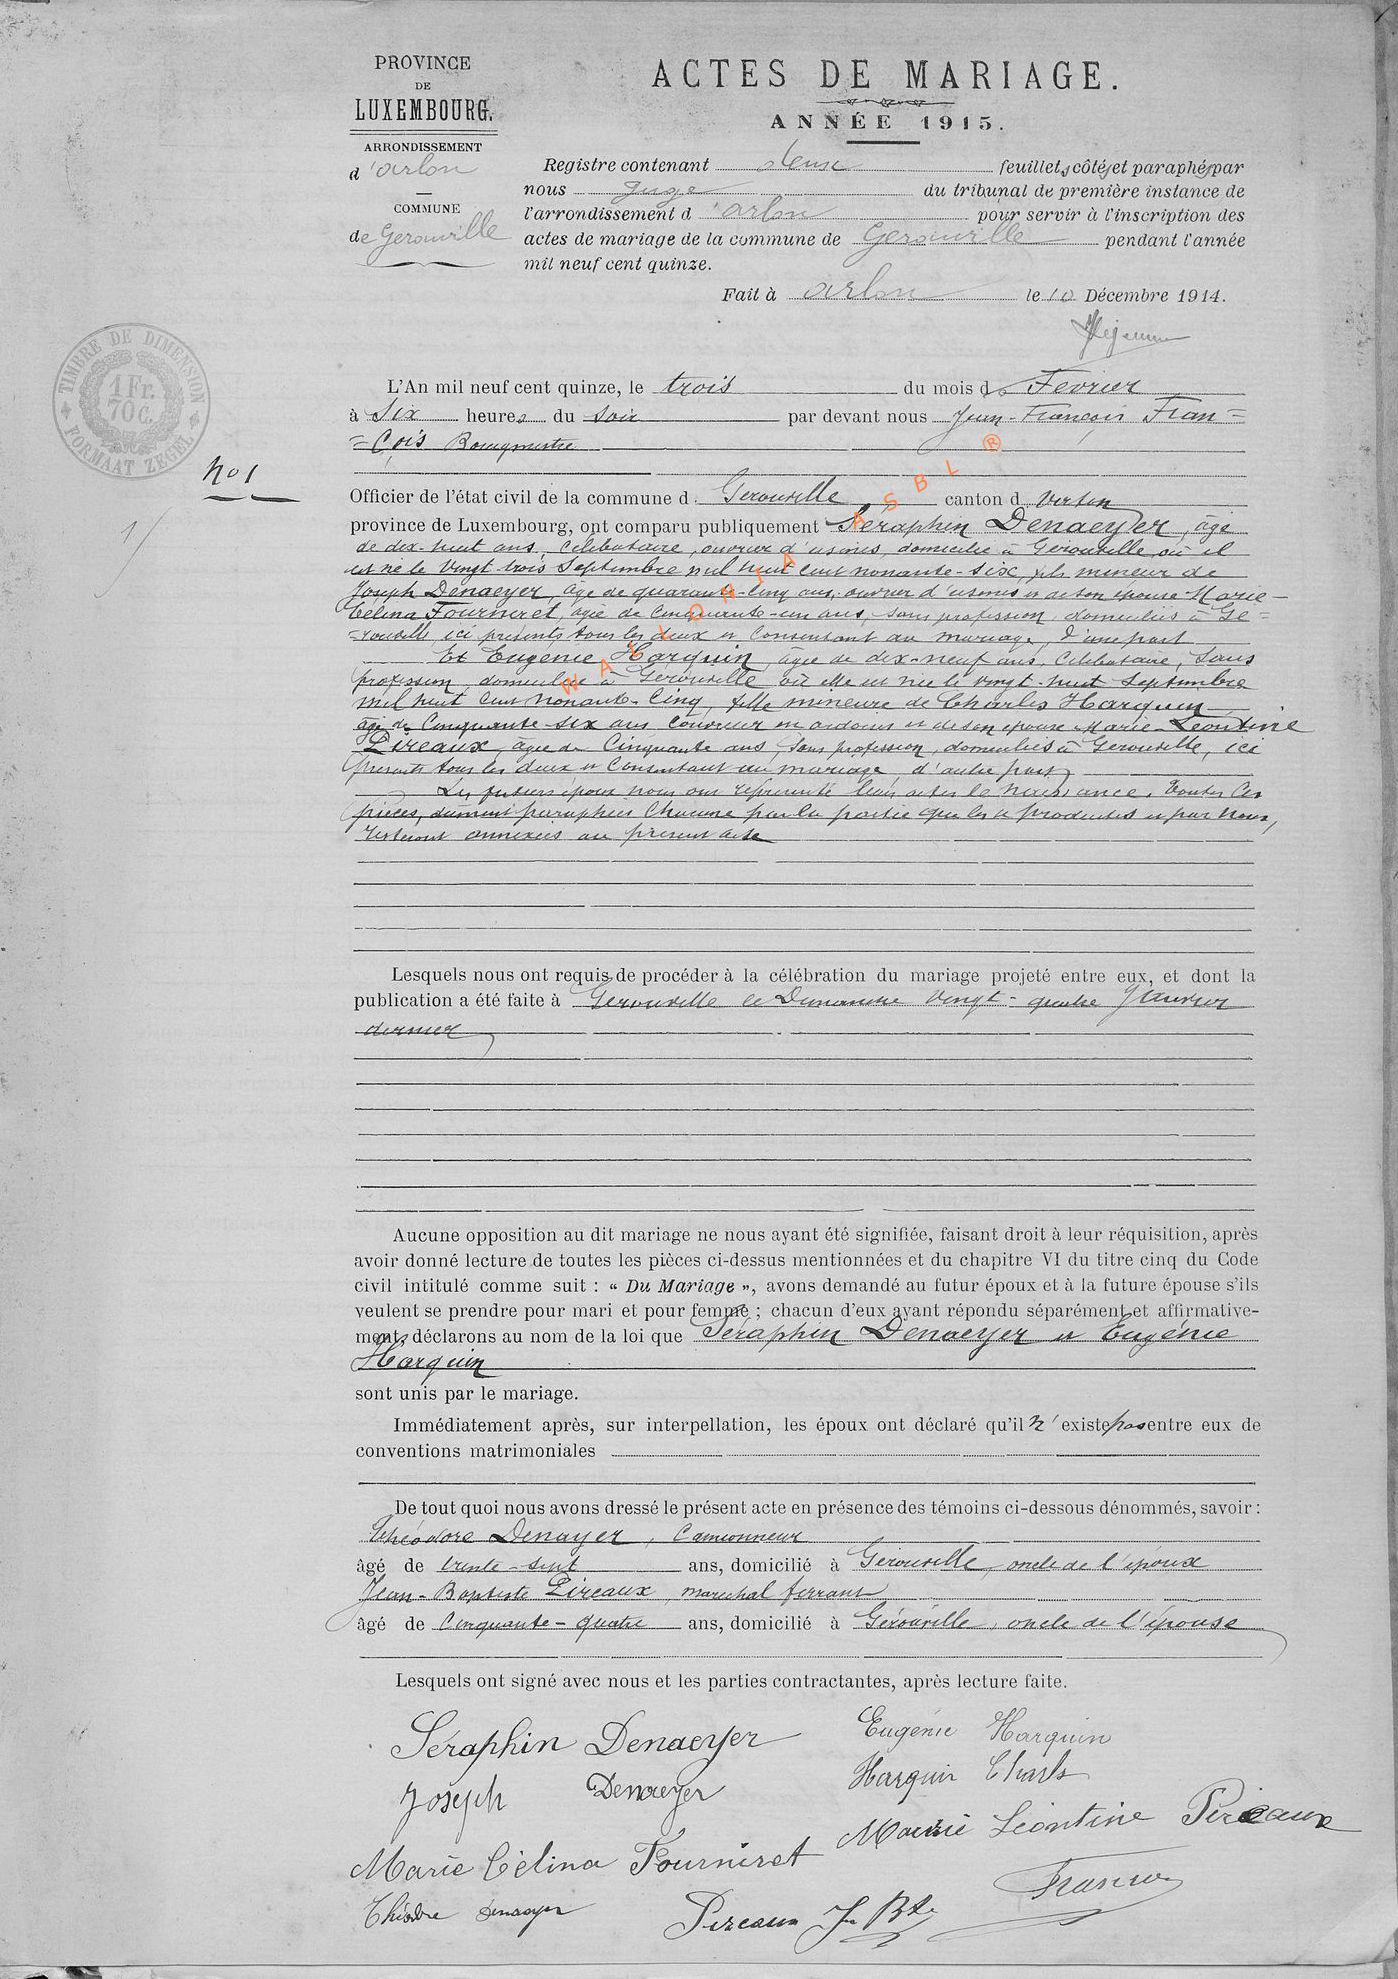 PROVINCE
DE
LUXEMBOURG.
ARRONDISSEMENT
d'arlon
COMMUNE
de Gerouville
ACTES DE MARIAGE.
ANNÉE 1915.
Registre contenant deux feuillets côtés et paraphés par
nous juge du tribunal de première instance de
l'arrondissement d'arlon pour servir à l'inscription des
actes de mariage de la commune de Gerouville pendant l'année
mil neuf cent quinze.
Fait à arlon le 10 Décembre 1914.
TIMBRE DE DIMENSION
1 Fr.
70 C.
FORMAAT ZEGEL
No 1
L'An mil neuf cent quinze, le trois du mois de Fevrier
à Six heures du soir par devant nous Jean-François Fran=
=çois Bourgmestre
Officier de l'état civil de la commune d. Gerouville canton d Virton
province de Luxembourg, ont comparu publiquement Séraphin Denaeyer, âgé
de dix-huit ans, célibataire, ouvrier d'usines, domicilié à Gerouville où il
est né le vingt trois Septembre mil huit cent nonante-six, fils mineur de
Joseph Denaeyer, âgé de quarante-cinq ans, ouvrier d'usines et de son épouse Marie-
Célina Fourniret, âgée de cinquante-un ans, sans profession, domiciliés à Gé=
=rouville, ici présents tous les deux et consentant au mariage, d'une part
Et Eugénie Harquin, âgée de dix-neuf ans, célibataire, sans
profession, domiciliée à Gérouville où elle est née le vingt-huit Septembre
mil huit cent nonante-cinq, fille mineure de Charles Harquin
âgé de cinquante-six ans, couvreur en ardoises et de son épouse Marie-Léontine
Pireaux, âgée de cinquante ans, sans profession, domiciliés à Gerouville, ici
présents tous les deux et consentant au mariage, d'autre part
Les futurs époux nous ont représenté leurs actes de naissance. Toutes ces
pièces, dûment paraphées chacune par la partie qui les a produites et par nous,
resteront annexées au présent acte
WALLONIA ASBL ®
Lesquels nous ont requis de procéder à la célébration du mariage projeté entre eux, et dont la
publication a été faite à Gerouville le Dimanche vingt-quatre Janvier
dernier
Aucune opposition au dit mariage ne nous ayant été signifiée, faisant droit à leur réquisition, après
avoir donné lecture de toutes les pièces ci-dessus mentionnées et du chapitre VI du titre cinq du Code
civil intitulé comme suit : « Du Mariage », avons demandé au futur époux et à la future épouse s'ils
veulent se prendre pour mari et pour femme ; chacun d'eux ayant répondu séparément et affirmative-
ment, déclarons au nom de la loi que Séraphin Denaeyer et Eugénie
Harquin
sont unis par le mariage.
Immédiatement après, sur interpellation, les époux ont déclaré qu'il n'existe pas entre eux de
conventions matrimoniales
De tout quoi nous avons dressé le présent acte en présence des témoins ci-dessous dénommés, savoir :
Théodore Denayer, Camionneur
âgé de trente-sept ans, domicilié à Gérouville, oncle de l'époux
Jean-Baptiste Pireaux, maréchal ferrant
âgé de Cinquante-quatre ans, domicilié à Gérouville, oncle de l'épouse
Lesquels ont signé avec nous et les parties contractantes, après lecture faite.
Séraphin Denaeyer Eugénie Harquin
Joseph Denaeyer Harquin Charls
Marie Léontine Pireaux
Marie Célina Fourniret
Théodre Denaeyer Pireaux J. Bte François